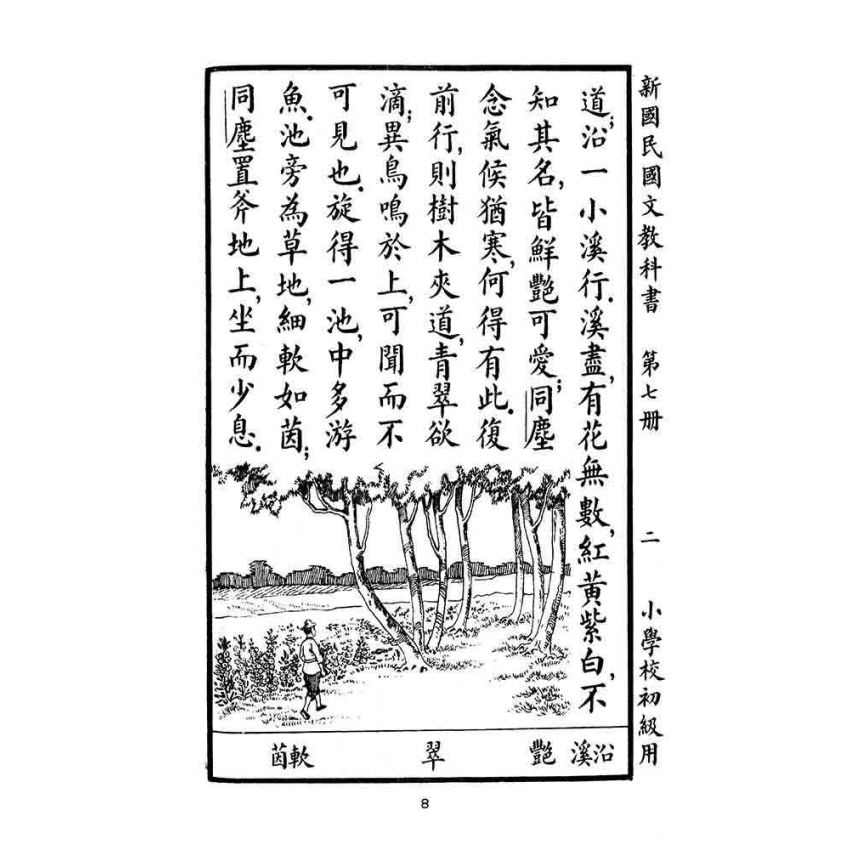 新國民國文教科書 第七册 二 小學校初級用
道;沿一小溪行.溪盡,有花無數,紅黃紫白,不
知其名,皆鮮艷可愛;同塵
念氣候猶寒,何得有此.復
前行,則樹木夾道,青翠欲
滴;異鳥鳴於上,可聞而不
可見也.旋得一池,中多游
魚.池旁為草地,細軟如茵;
同塵置斧地上,坐而少息.
沿溪 艷 翠 軟茵
8